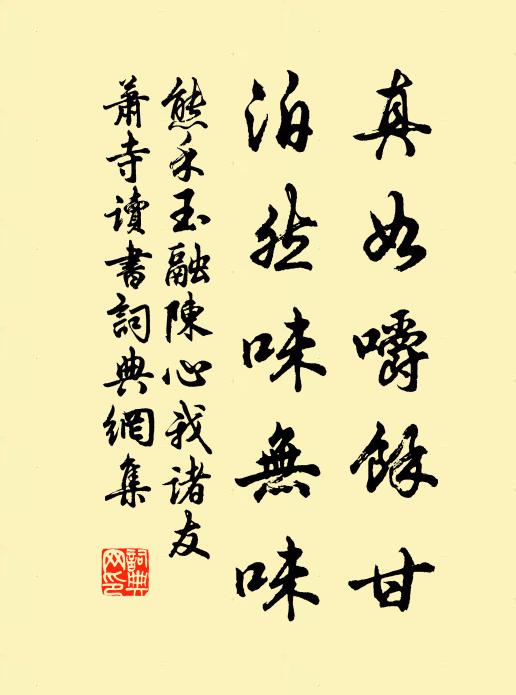 真如嚼餘甘
泊然味無味
熊禾玉融陳心我諸友
蕭寺讀書詞典網集
詞典
网印